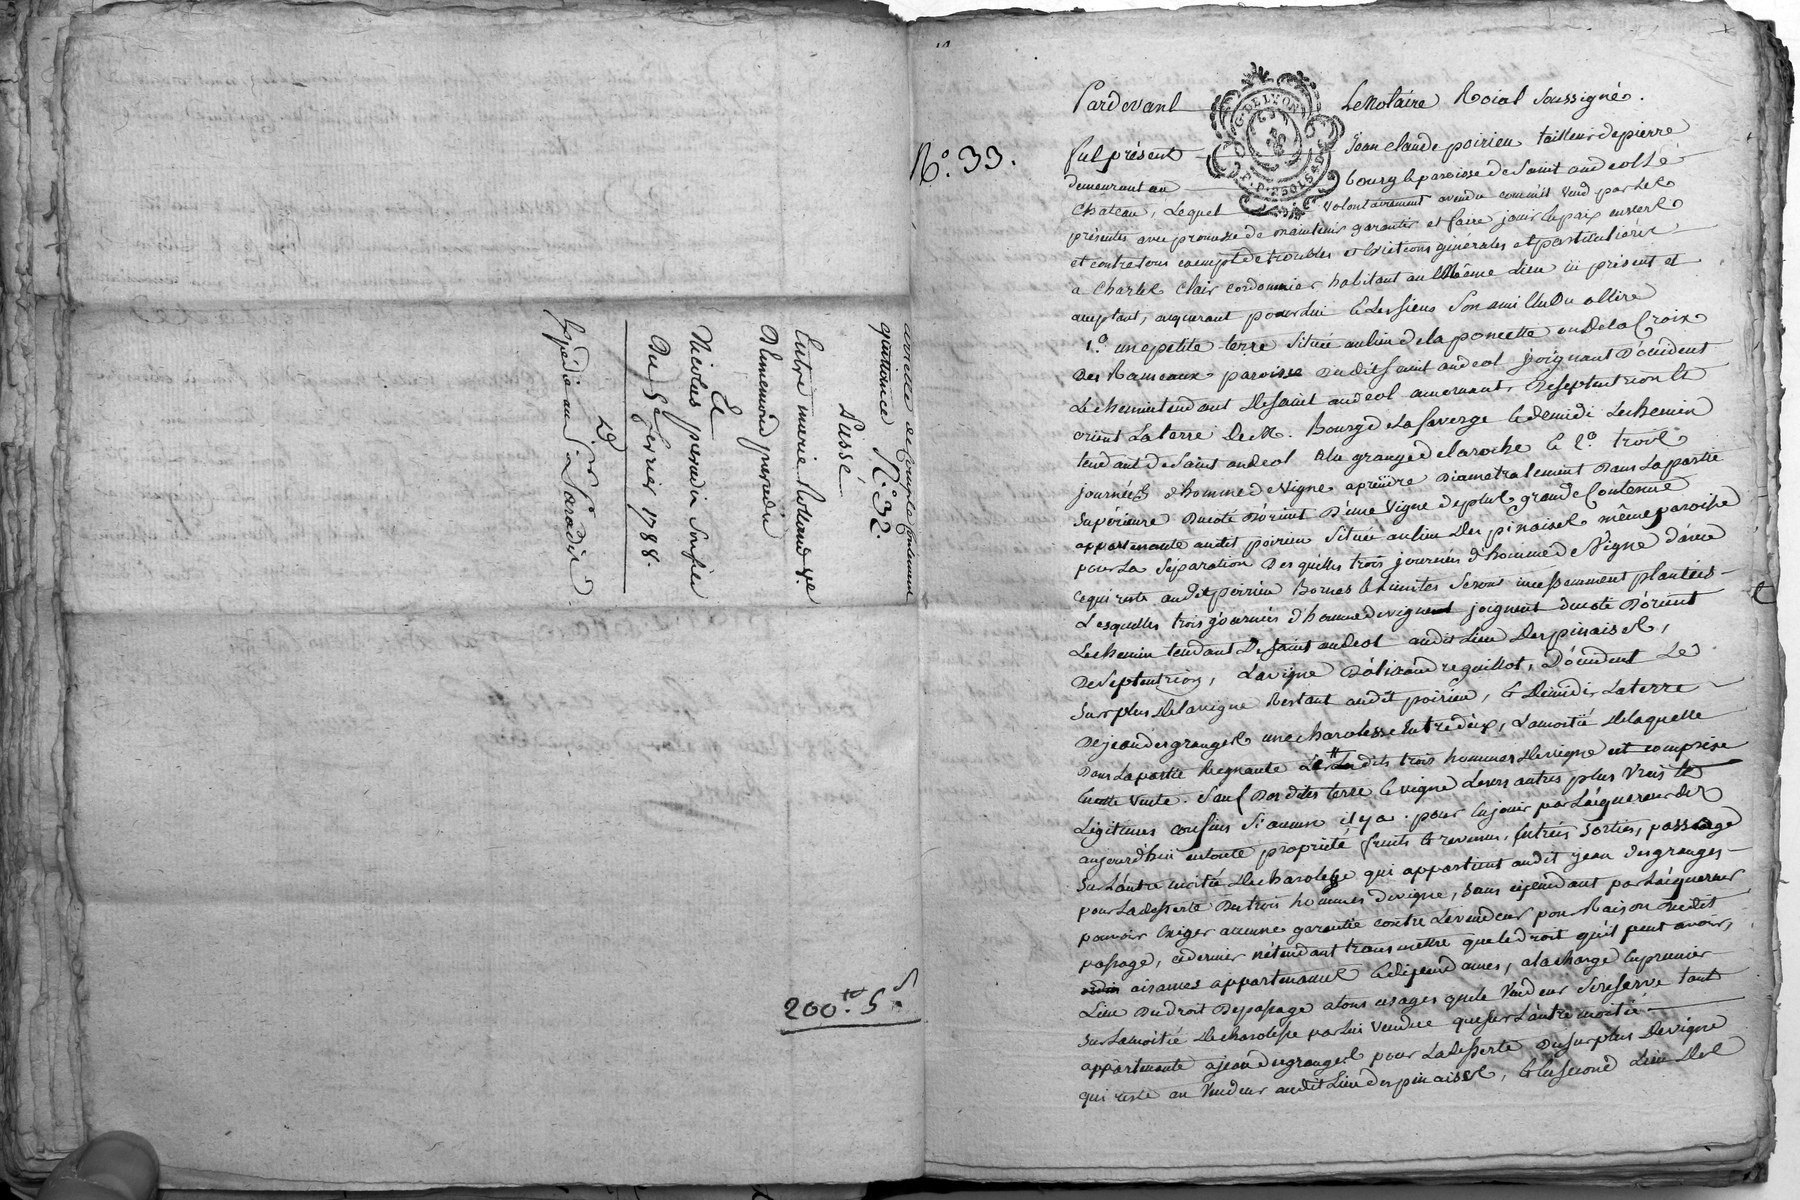 quittance N.° 32.
Passé
Entre marie Rolland ve
Et
Nicolas perradin
Du 5e fevrier 1788.
Expédié au Sr Paradis
200.tt 5.s
N.° 33.
Pardevant Le Notaire Roial Soussigné.
fut présent Jean claude poirieu tailleur de pierre
demeurant au bourg & paroisse de Saint andeol Le
Chateau, Lequel volontairement a vendu comme il vend par Les
présentes avec promesse de maintenir garantir et faire jouir en paix envers
et contre tous exempt de troubles et Evictions générales et particulieres
a Charles Clair cordonnier habitant au Même Lieu ici présent et
acceptant, acquerant pour Lui & Les siens Son ami Elu ou a Elire
1.° une petite terre Située au lieu de la poncette ou De la Croix
Des Rameaux paroisse Dudit Saint andeol joignant D'occident
Le chemin tendant De Saint andeol a mornant, De septentrion &
orient La terre De M. Bourg De La faverge & De midi Le chemin
tendant de Saint andeol a la grange de la roche & 2.° trois
journées d'homme de Vigne a prendre Diametralement Dans La partie
Supérieure Du coté D'orient D'une Vigne de plus grande Contenue
appartenante audit poirieu Située au lieu Des pinaises même paroisse
pour La Séparation Desquelles trois journées d'homme de Vigne d'avec
ce qui reste audit poirieu Bornes & Limites Seront incessamment plantées
Lesquelles trois journées d'homme de vigne joignent du coté D'orient
Le chemin tendant De Saint andeol audit Lieu Des pinaises,
De Septentrion, La vigne D'alixandre guillot, D'occident Le
Surplus De La vigne Restant audit poirieu, & De midi La terre
De jean desgranges une charolesse Entre deux, La moitié De laquelle
Dans La partie Regnante Les Dits trois hommes De vigne est comprise
En cette Vente. Sauf Desdites terre & vigne Leurs autres plus Vrais &
Légitimes confins Si aucun il y a. pour En jouir par L'acquereur dez
aujourd'hui en toute propriété fruits & revenus, Entrées Sorties, passage
Sur L'autre moitié De charolesse qui appartient audit jean desgranges
pour La desserte Des trois hommes de vigne, Sans cependant par L'acquereur
pouvoir Exiger aucune garantie contre Le vendeur pour Raison Dudit
passage, ce dernier n'étendant transmettre que le droit qu'il peut avoir,
aisances appartenances & dépendances, a la charge En premier
Lieu Du droit De passage a tous usages que le Vendeur Se reserve tant
Sur La moitié De charolesse par Lui Vendue que Sur L'autre moitié
appartenante a jean desgranges pour La desserte Du Surplus De vigne
qui reste au Vendeur audit Lieu des pinaises, & En Second Lieu Des